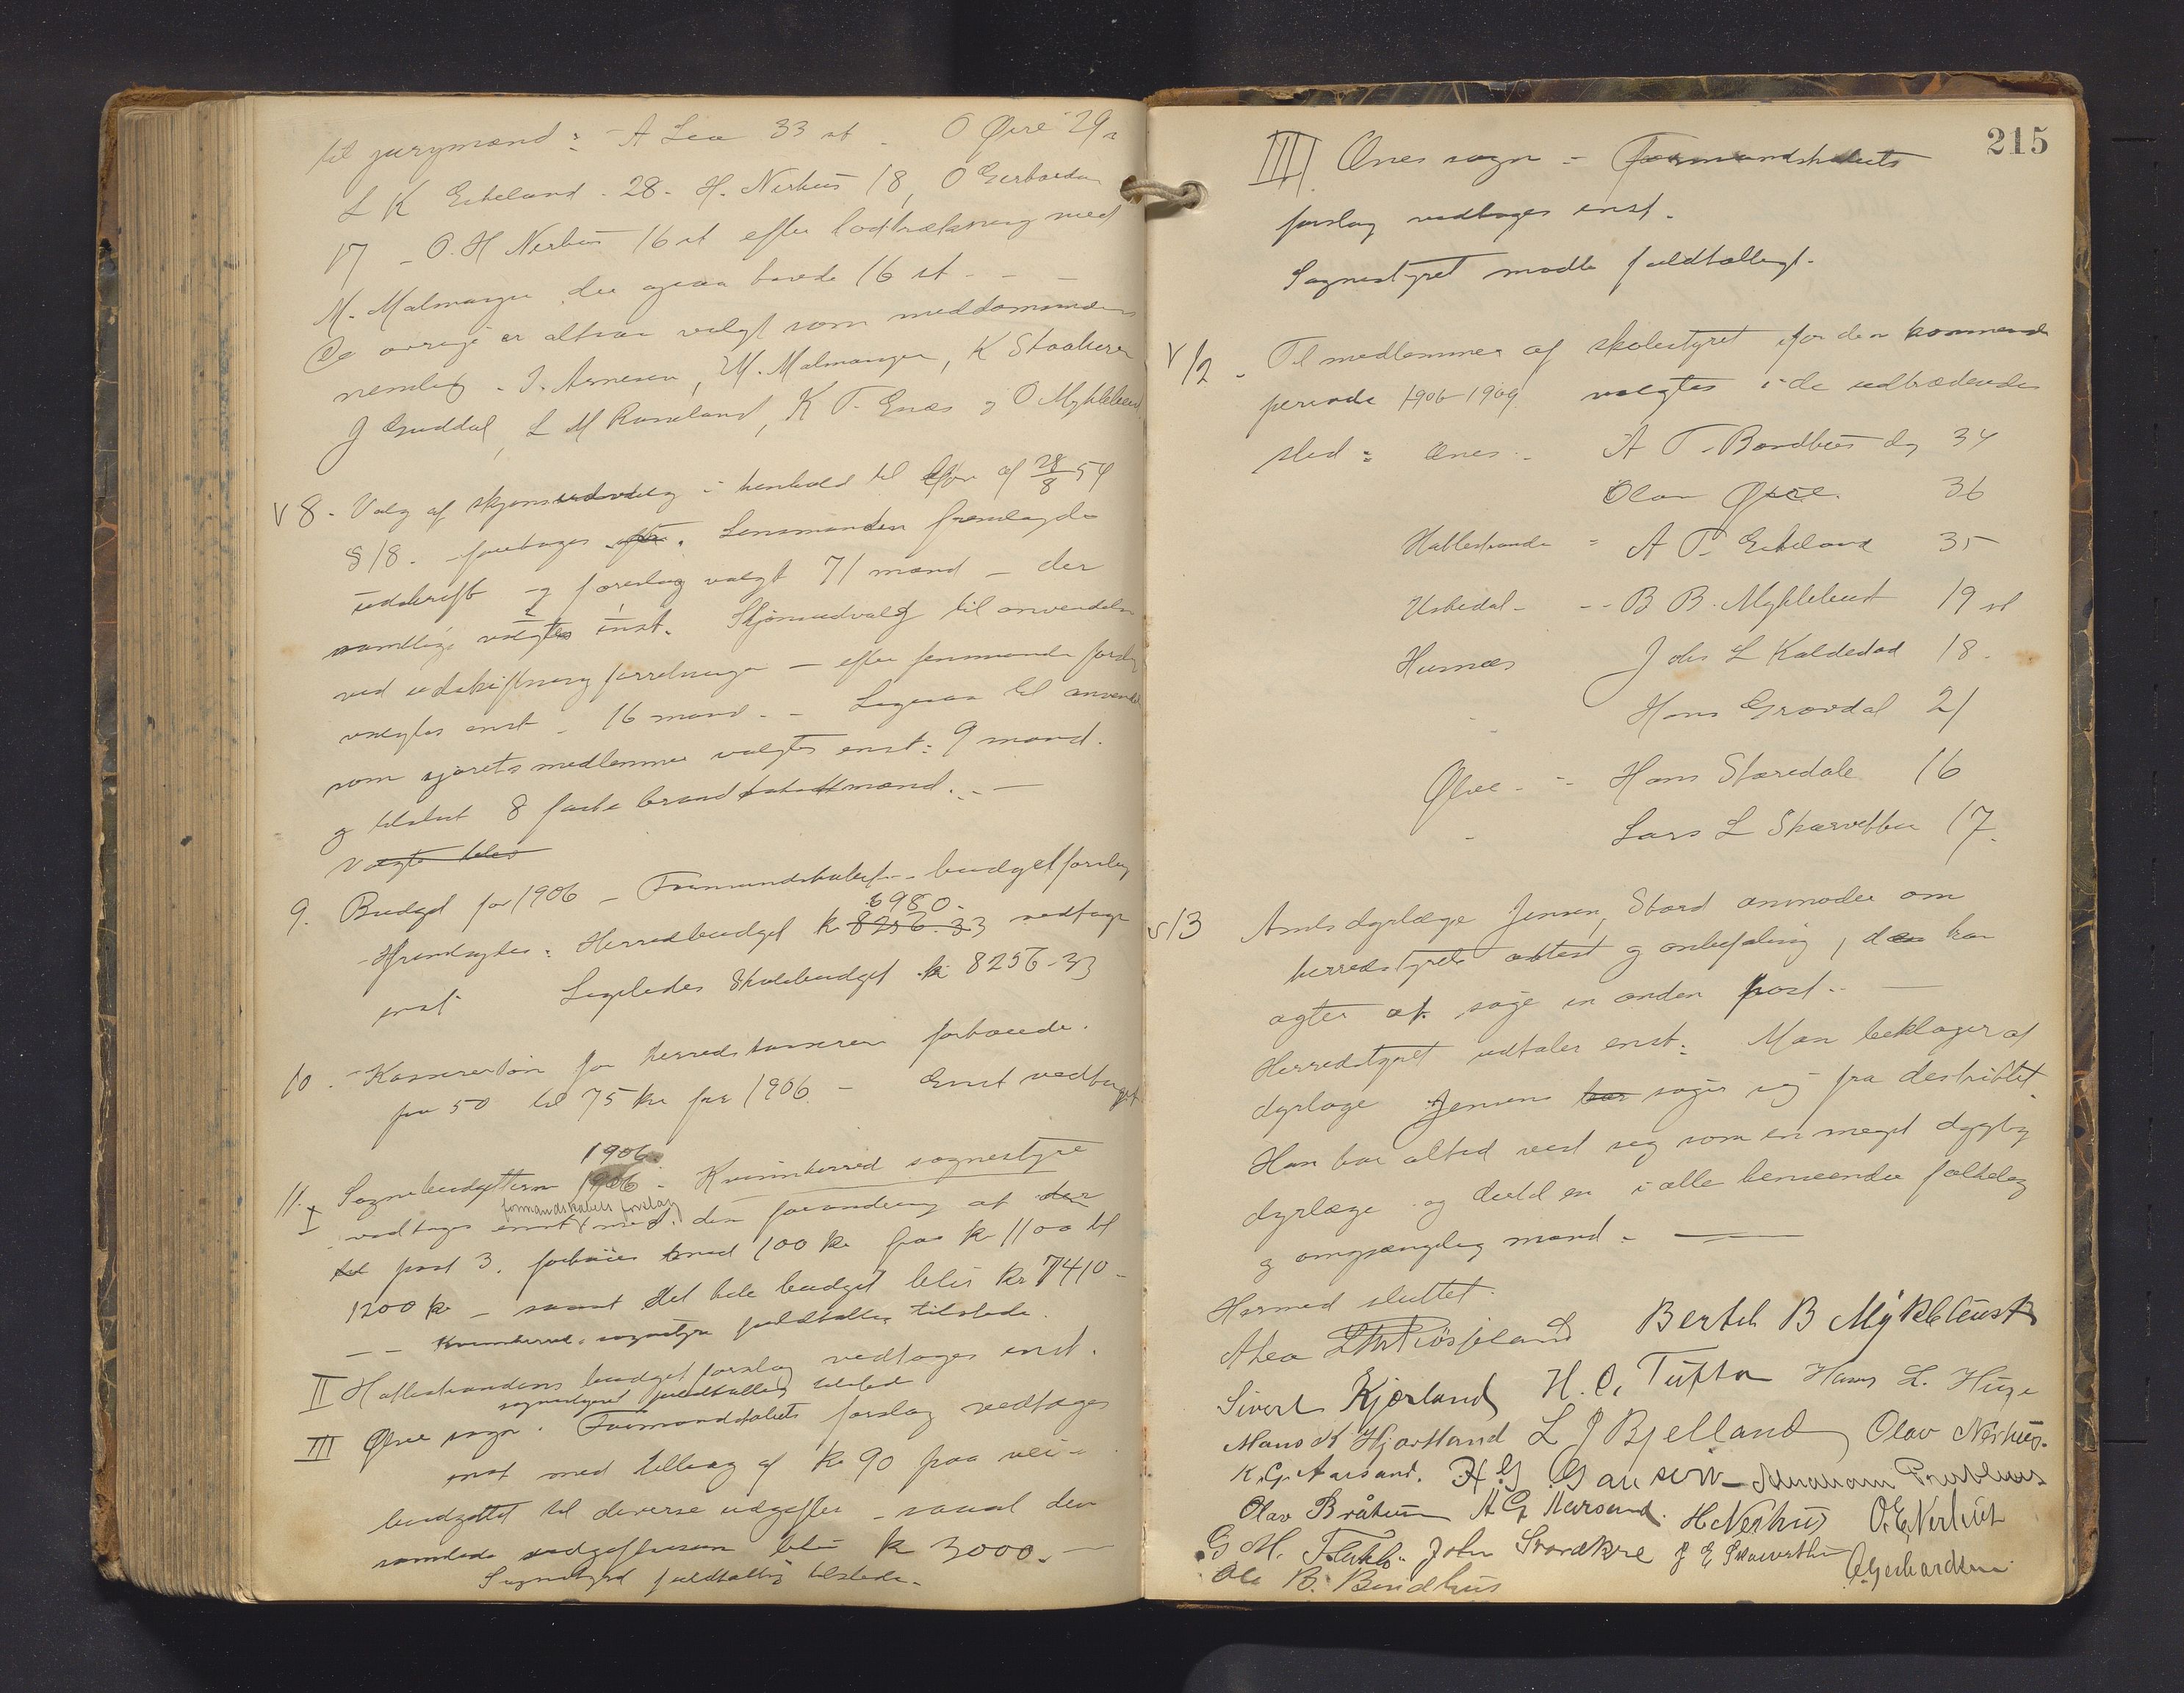 til jurymænd: - A Lea 33 st - O Øvre 29 s
L K Eikeland - 28 - H. Nerhus 18, O Gerhardsen
17 - O. H Nerhus 16 st efter lodtrækning med
M. Malmanger der ogsaa havde 16 st - -
De øvrige er altsaa valgt som meddommere
nemlig - J. Arnesen, M. Malmanger, K Staaheien
J Guddal, L M Røseland, K T. Enæs og O Myklebust
V 8. Valg af skjønsudvalg i henhold til lov af 28/8 54
§ 18. - foretages. Lensmanden fremlagde
udskrift og forslag valgt 71 mand - der
samtlige valgtes enst. Skjønsudvalg til anvendelse
ved udskiftning forretninger - efter lensmandens forslag
valgtes enst - 16 mand. - Ligesaa til anvendelse
som sjøretsmedlemmer valgtes enst: 9 mand.
og tilslut 8 faste brandtakstmænd. - -
Valgte blev
9. Budget for 1906 - Formandskabets budgetforslag
6980.
fremlagdes: Herredbudget kr 8256.33 vedtages
enst Ligeledes Skolebudget kr 8256-33
10. - Kasserers løn for herredskassereren forhøiede.
fra 50 til 75 kr for 1906. - Enst vedtaget
1906.
11. Sognebudgetterne 1906 - Kvinnherred sognestyre
formandskabets forslag
I vedtages enst med den forandring at der
til post 3. forhøies med 100 kr fra kr 1100 til
1200 kr - saaat det hele budget blir kr 7410 -
- - Kvinnherred sognestyre fuldtallig tilstede.
II Hatlestrandens budgetforslag vedtages enst.
sognestyret fuldtallig tilstede
III Ølve sogn. Formandskabets forslag vedtages
enst med tillæg af kr 90 paa vei-
budgettet til diverse udgifter - saaat den
samlede udgiftssum blir kr 3000. -
Sognestyret fuldtallig tilstede. -
215
IIII Ænes sogn - Formandskabets
forslag vedtages enst.
Sognestyret mødte fuldtalligt.
V 12 - Til medlemmer af skolestyret for den kommende
periode 1906-1909 valgtes i de udtrædendes
sted: Ænes - A T. Bondhus dy 34
Olav Øvre. 36
Hatlestranda - A T. Eikeland 35
Uskedal - - B B. Myklebust 19 st
Husnæs Johs L Kaldestad 18.
- Hans Grøvdal 21
Ølve - - Hans Staredale 16
- Lars L Skarvetten 17.
V 13 Amtsdyrlæge Jensen, Stord anmoder om
herredstyrets attest og anbefaling, da han
agter at søge en anden post. - -
Herredstyret udtaler enst: Man beklager at
dyrlæge Jensen har søger sig fra distriktet
Han har altid vist sig som en meget dygtig
dyrlæge og dertil en i alle henseender folkelig
og omgjængelig mand. -
Hermed sluttet.
A Lea L M Røseland Bertel B Myklebust
Sivert Kjærland H. O. Tufta Hans L. Huge
Mons K Hjortland L J Bjelland Olav Nerhus.
K. G. Aarsand. H G Gausvik Abraham
Olav Bråtun A G Aarsand. H Nerhus O. E. Nerhus
G M. John Sværakre J E Skarvetten
Ole B. Bondhus O Gerhardsen